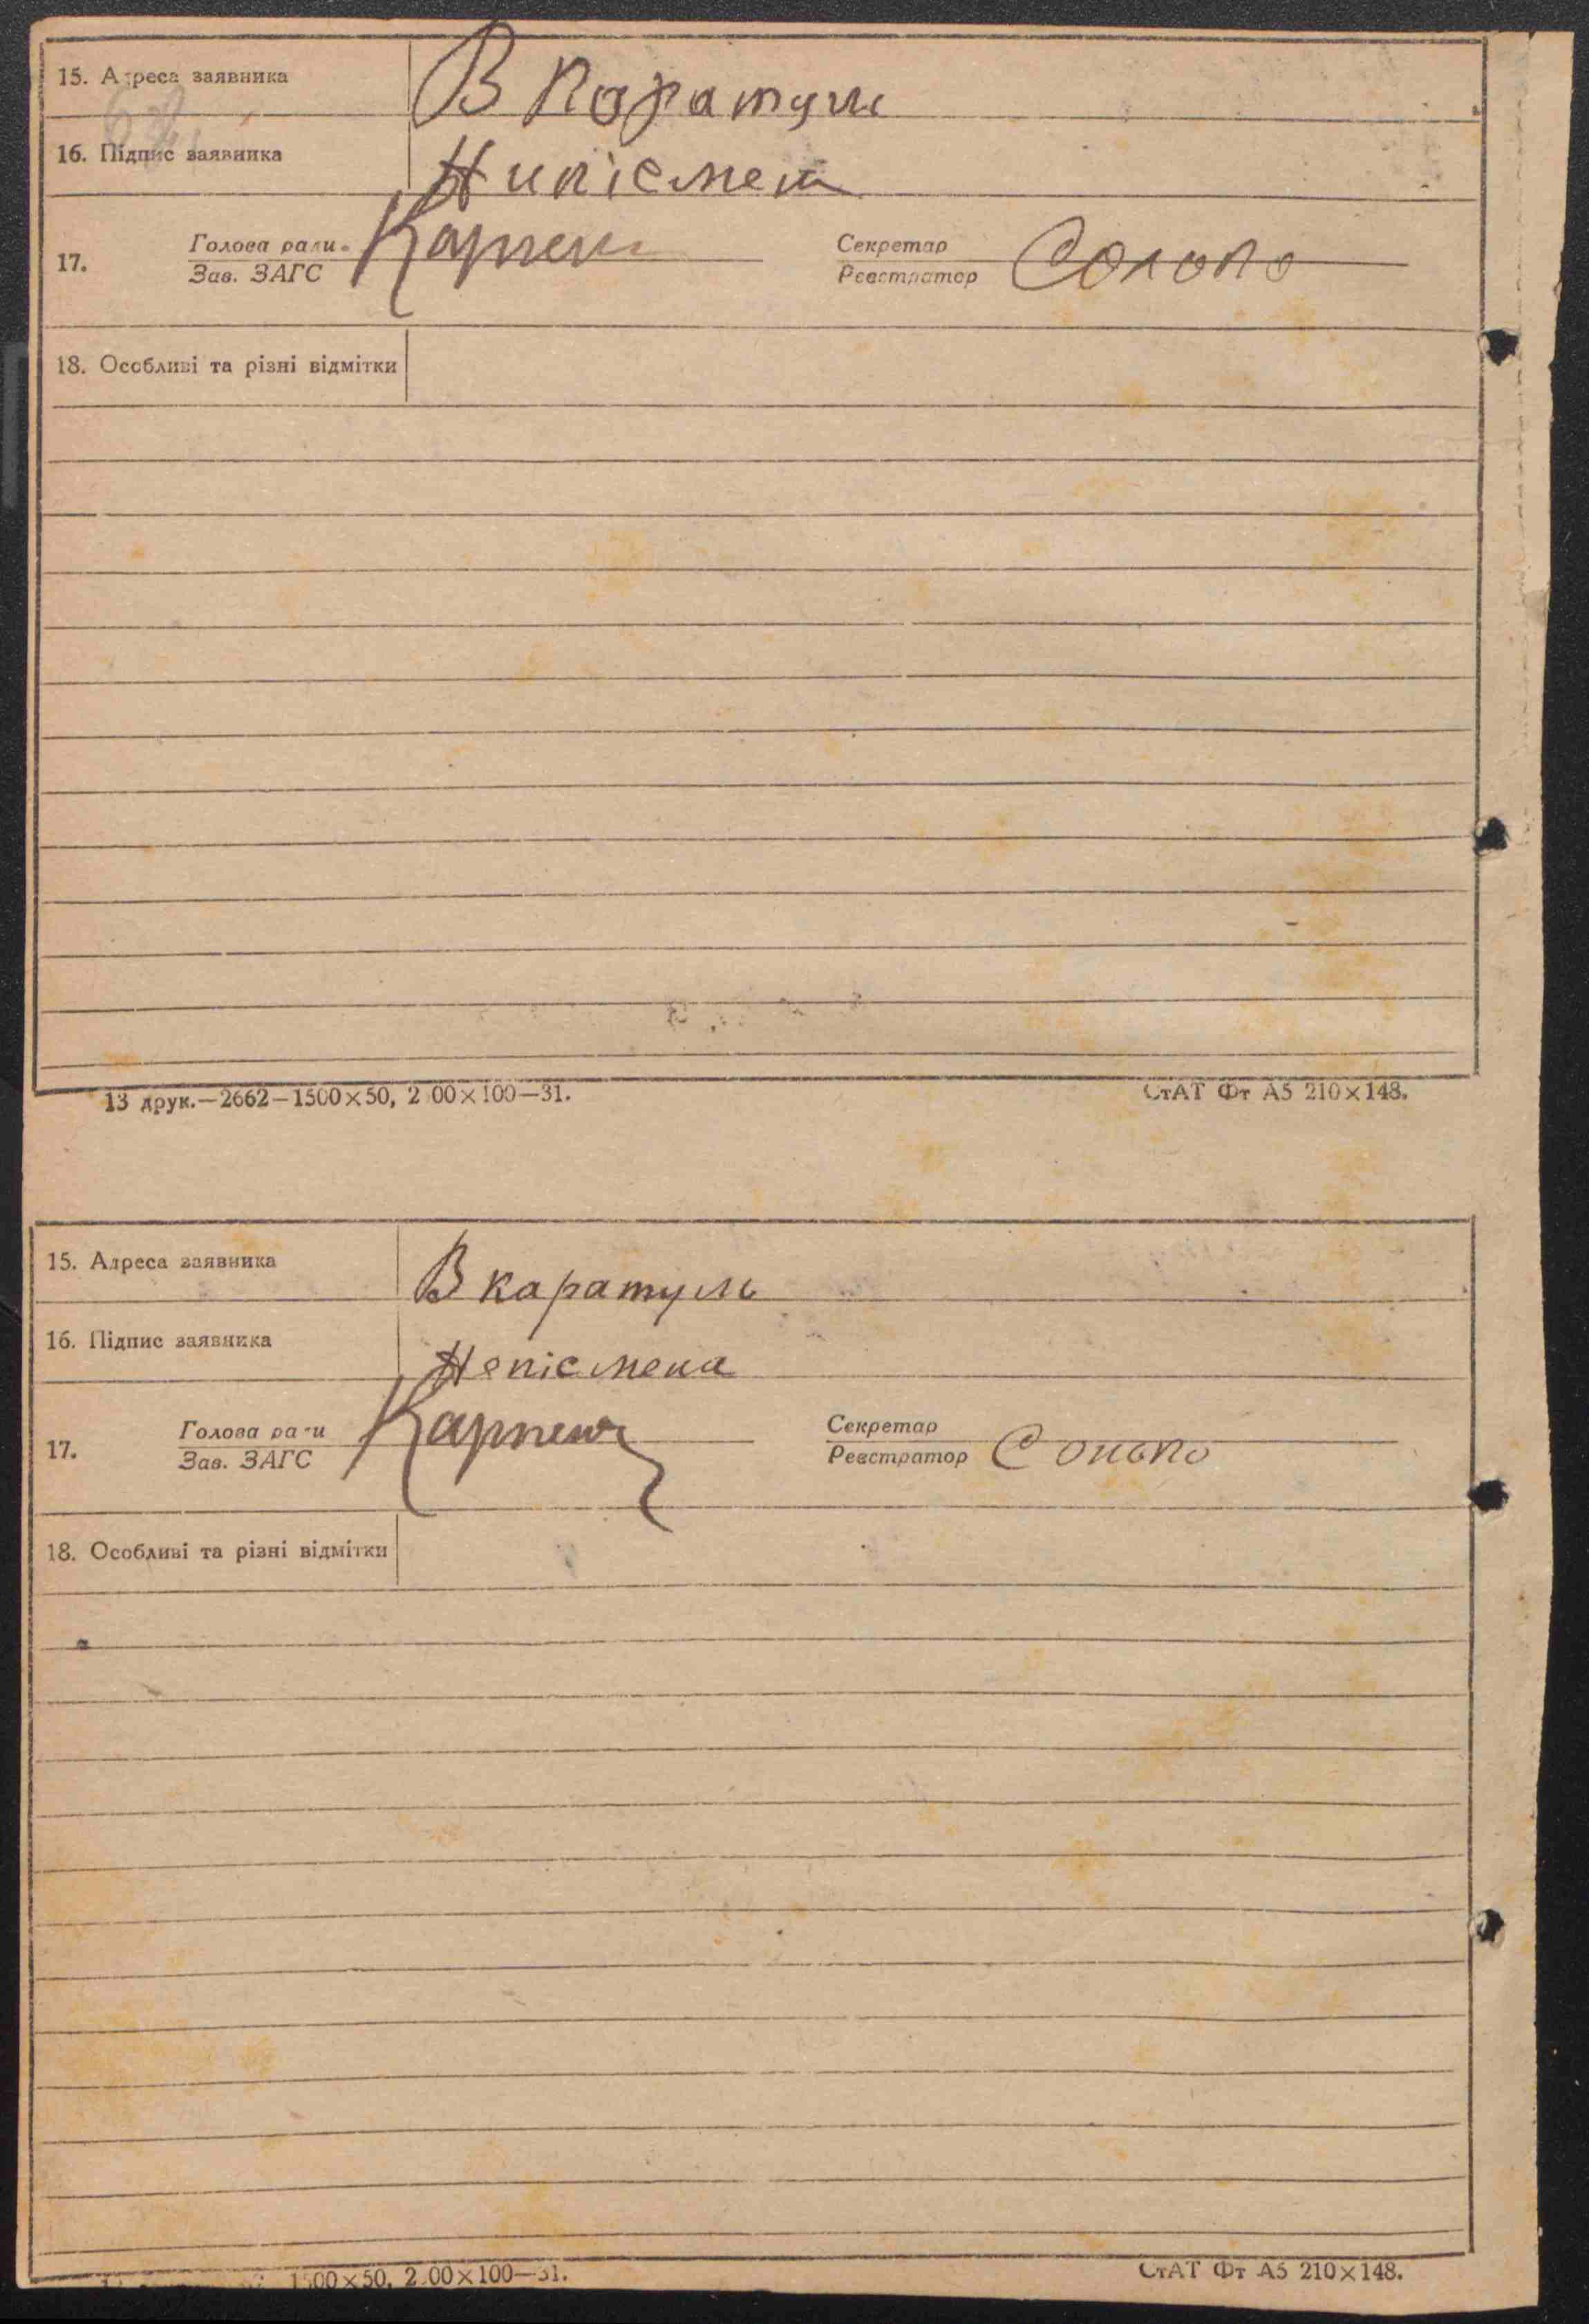 15. Адреса заявника В Каратулі
16. Підпис заявника Нипісмен
17. Голова ради Зав. ЗАГС Карпен Секретар Реєстратор
18. Особливі та різні відмітки
13 друк.—2662—1500×50, 2 00×100—31. СтАТ Фт А5 210×148.
15. Адреса заявника В каратулі
16. Підпис заявника Непісмена
17. Голова ради Зав. ЗАГС Карпен Секретар Реєстратор
18. Особливі та різні відмітки
1 00×50, 2 00×100—31. СтАТ Фт А5 210×148.